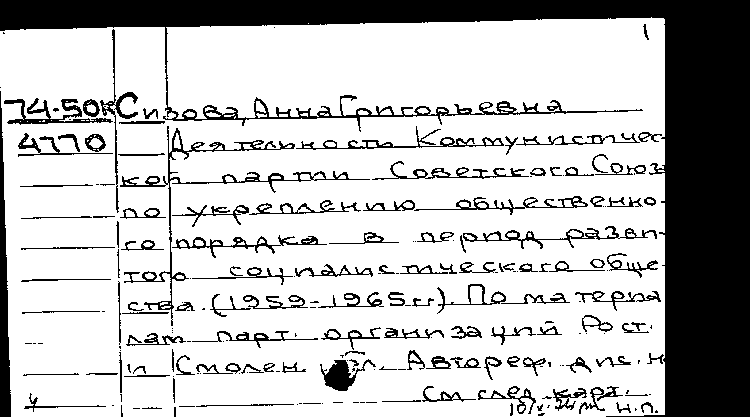 1
74-50к Сизова, Анна Григорьевна
4770 Деятельность Коммунистичес-
кой партии Советского Союза
по укреплению общественно-
го порядка в период разви-
того социалистического обще-
ства. (1959-1965 гг.). По материа
лам парт. организаций Рост.
и Смолен. обл. Автореф. дис. н
См след карт.
4
Н.П.